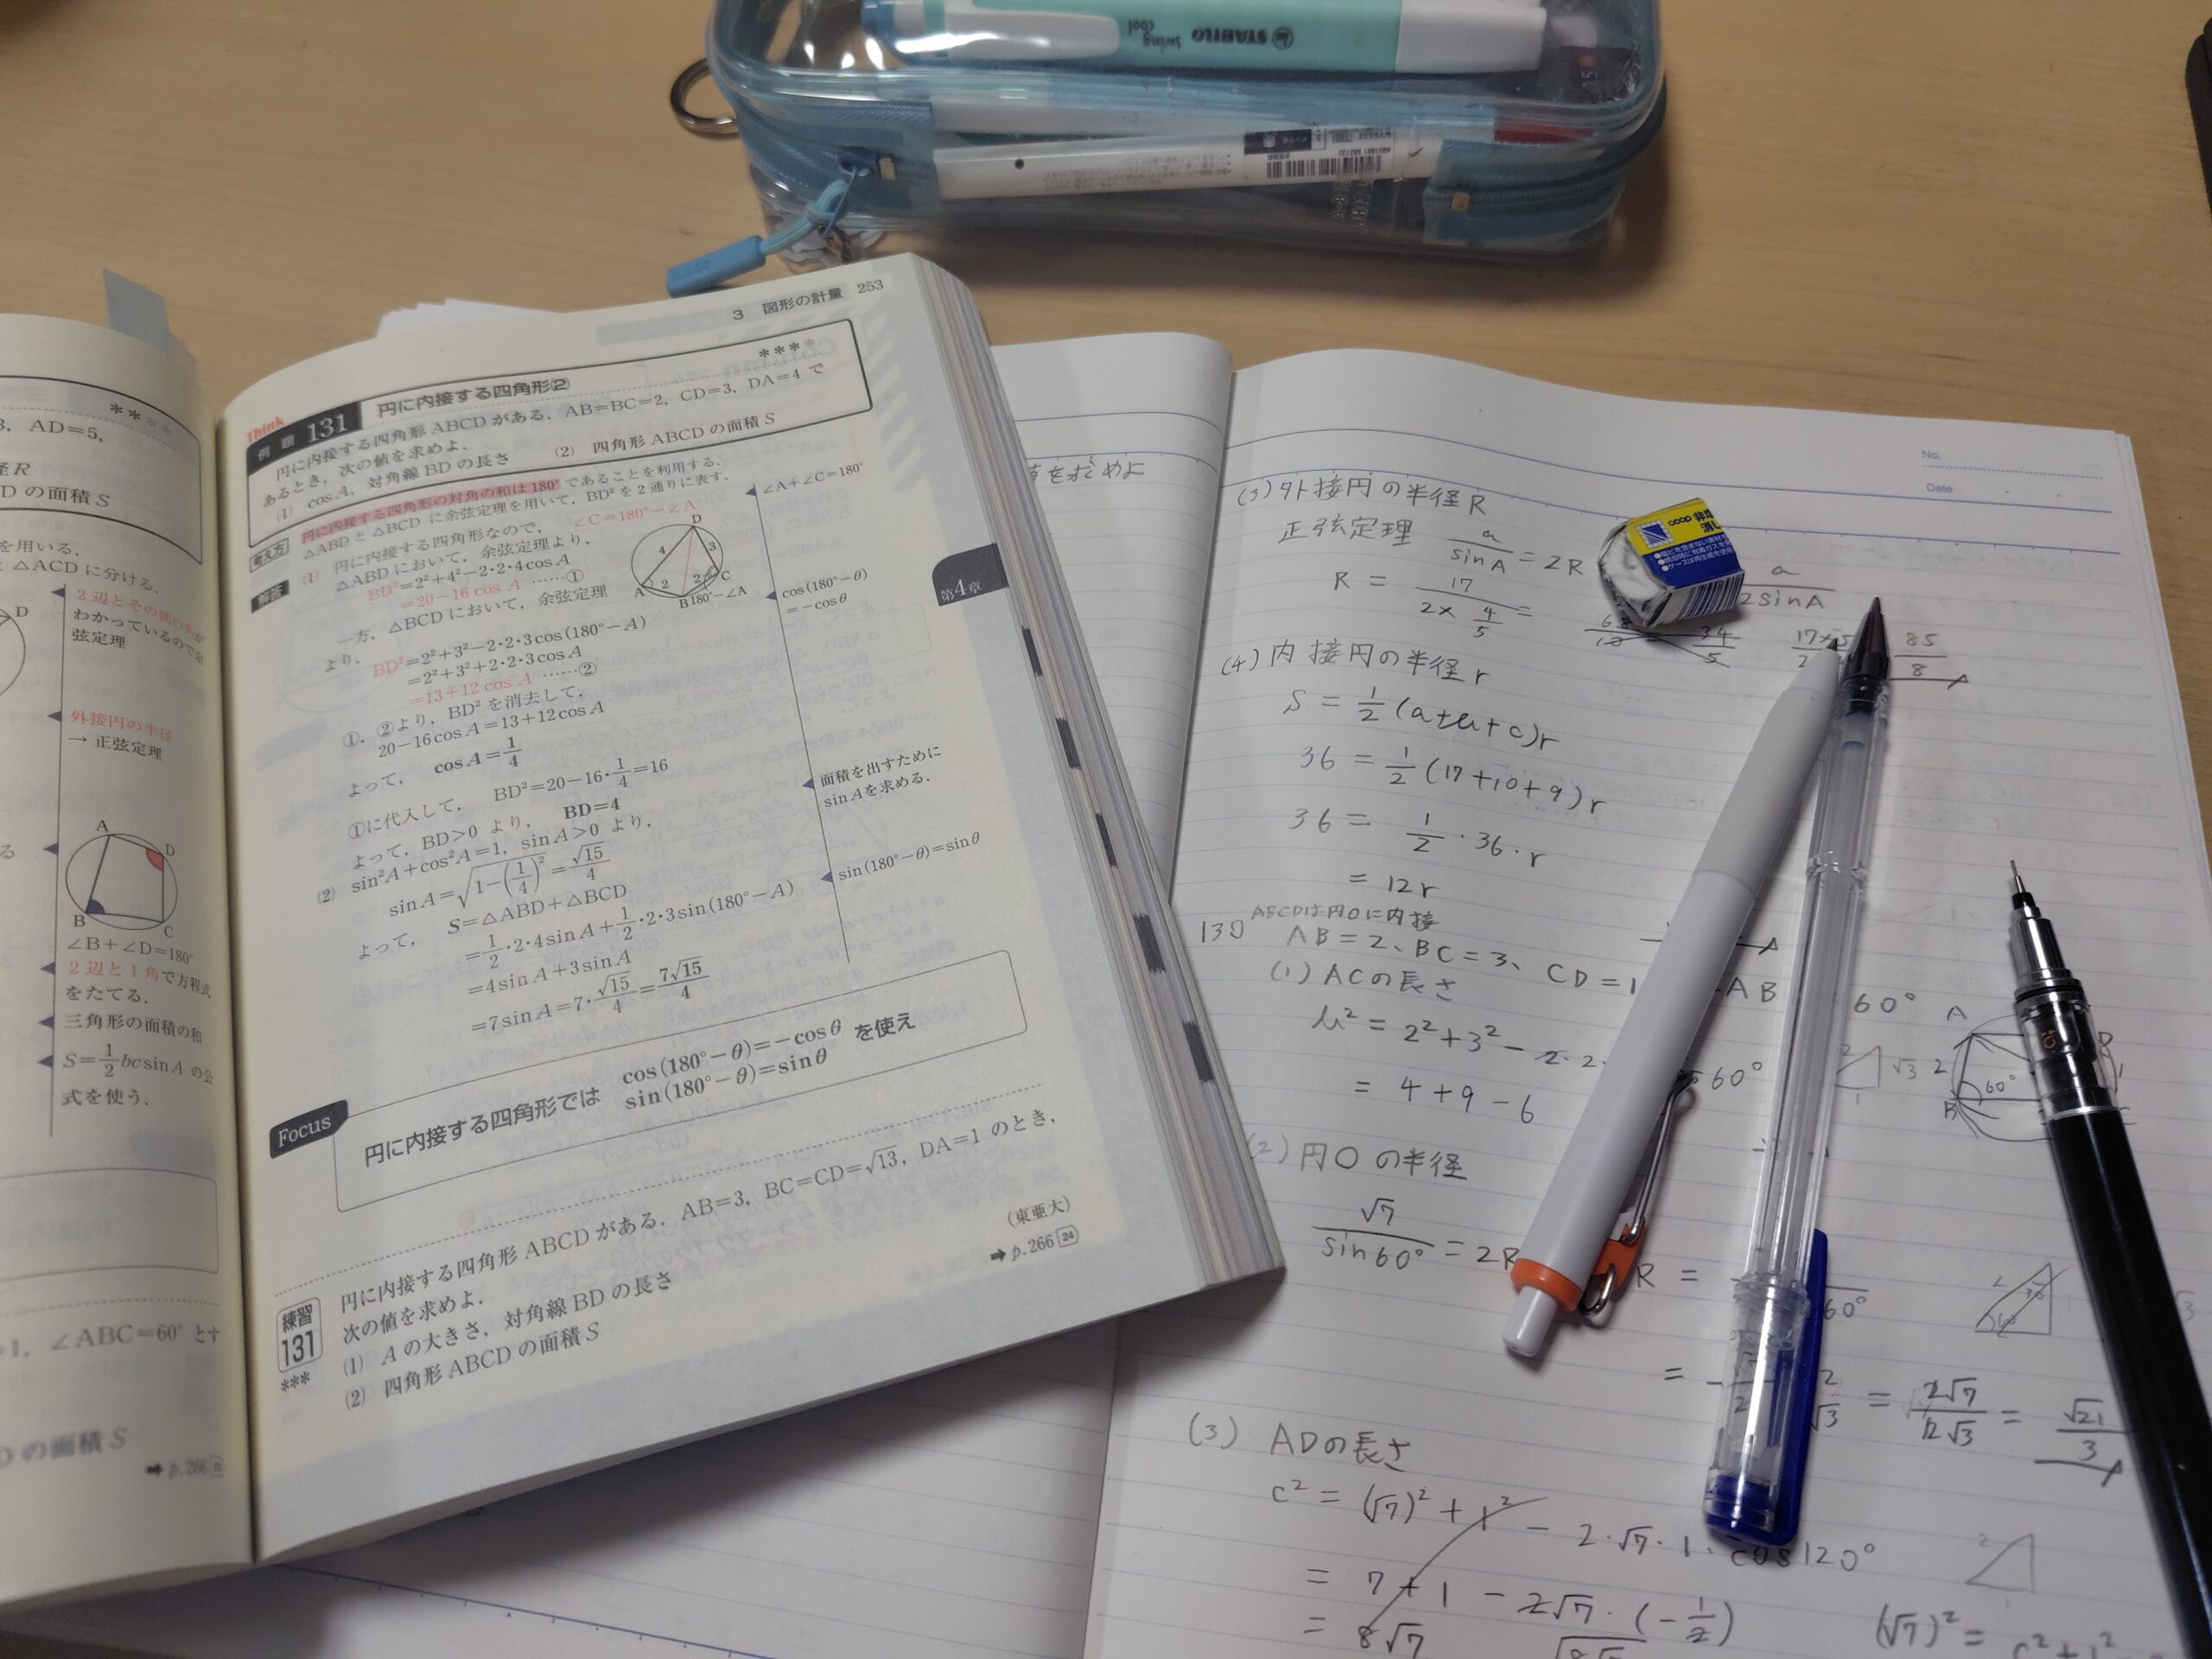 STABILO
swing
cool
3 図形の計量 253
****
Think
例題 131 円に内接する四角形(2)
円に内接する四角形 ABCD がある．AB=BC=2，CD=3，DA=4 で
あるとき，次の値を求めよ．
(1) cosA，対角線 BD の長さ (2) 四角形 ABCD の面積 S
考え方 円に内接する四角形の対角の和は 180° であることを利用する．
△ABD と △BCD に余弦定理を用いて，BD² を 2 通りに表す．
解答 (1) 円に内接する四角形なので，∠C=180°−∠A
△ABD において，余弦定理より，
BD²=2²+4²−2・2・4cosA
=20−16 cosA ……①
一方，△BCD において，余弦定理
より，
BD²=2²+3²−2・2・3cos(180°−A)
=2²+3²+2・2・3cosA
=13+12 cosA ……②
①，②より，BD² を消去して，
20−16cosA=13+12cosA
よって， cosA=1/4
①に代入して， BD²=20−16・1/4=16
よって，BD>0 より， BD=4
(2) sin²A+cos²A=1，sinA>0 より，
sinA=√(1−(1/4)²)=√15/4
よって， S=△ABD+△BCD
=1/2・2・4sinA+1/2・2・3sin(180°−A)
=4sinA+3sinA
=7sinA=7・√15/4=7√15/4
∠A+∠C=180°
D
4
3
2
2
A
B
C
180°−∠A
cos(180°−θ)
=−cosθ
面積を出すために
sinAを求める．
sin(180°−θ)=sinθ
第4章
Focus
円に内接する四角形では cos(180°−θ)=−cosθ
sin(180°−θ)=sinθ を使え
練習
131
***
円に内接する四角形 ABCD がある．AB=3，BC=CD=√13，DA=1 のとき，
次の値を求めよ．
(1) A の大きさ，対角線 BD の長さ
(2) 四角形 ABCD の面積 S
(東亜大)
➡p.266 24
***
AD=5，
径R
D の面積 S
を用いる．
△ACD に分ける．
D
2 辺とその間の角が
わかっているので余
弦定理
外接円の半径
→ 正弦定理
A
D
B
C
∠B+∠D=180°
2 辺と 1 角で方程式
をたてる．
三角形の面積の和
S=1/2 bcsinA の公
式を使う．
1，∠ABC=60° とす
の面積 S
➡p.266
を求めよ
No.
Date
(3) 外接円の半径 R
正弦定理 a/sinA = 2R
a/2sinA
R = 17/(2×4/5) =
34/5
85/8
(4) 内接円の半径 r
S = 1/2 (a+b+c)r
36 = 1/2 (17+10+9)r
36 = 1/2・36・r
= 12r
ABCDは円Oに内接
130 AB=2、BC=3、CD=1
60°
(1) ACの長さ
b² = 2²+3²−2・2・
60°
= 4+9−6
A
D
2
60°
B
2
√3
1
(2) 円Oの半径
√7/sin60° = 2R
R =
60°
= 2√7/2√3 = √21/3
(3) ADの長さ
c² = (√7)²+1²−2・√7・1・cos120°
= 7+1−2√7・(−1/2)
= 8√7
(√7)² = c²+1²